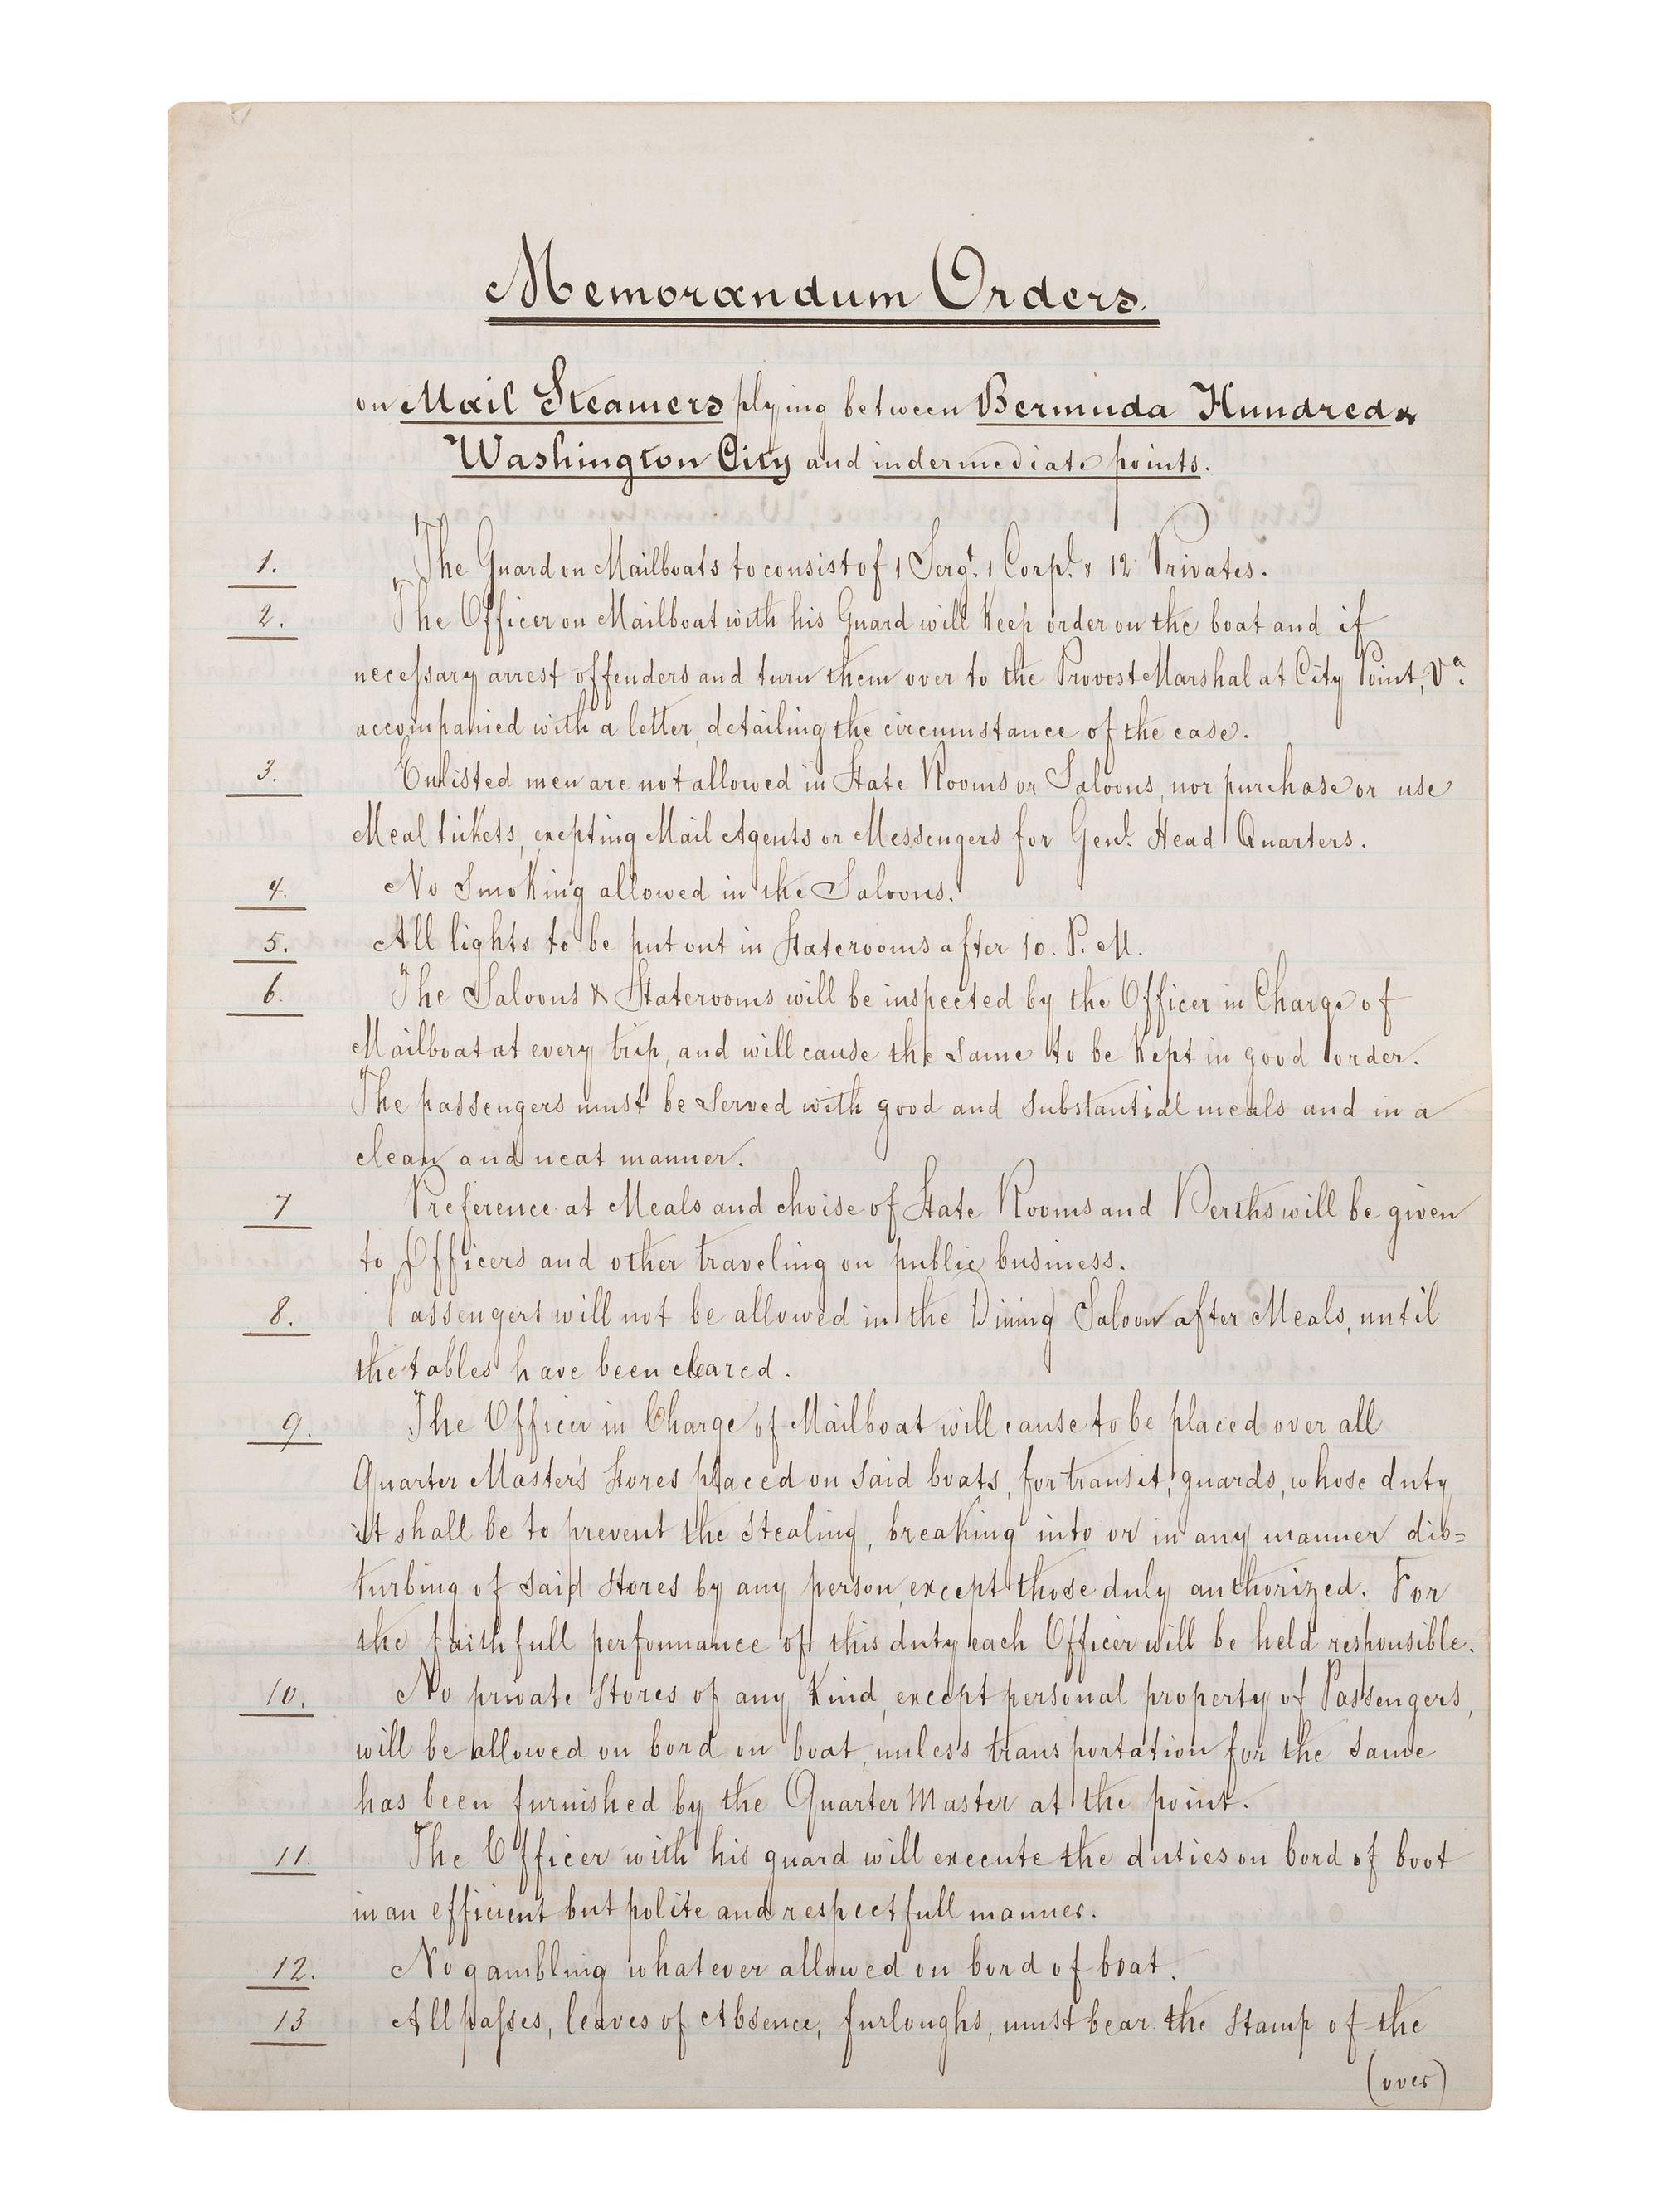 Memorandum Orders.
on Mail Steamers plying between Bermuda Hundred &
Washington City and indermediate points.
1. The Guard on Mailboats to consist of 1 Sergt. 1 Corpl. & 12 Privates.
2. The Officer on Mailboat with his Guard will keep order on the boat and if
necessary arrest offenders and turn them over to the Provost Marshal at City Point, Va.
accompanied with a letter, detailing the circumstance of the case.
3. Enlisted men are not allowed in State Rooms or Saloons, nor purchase or use
Meal tickets, exepting Mail Agents or Messengers for Genl. Head Quarters.
4. No Smoking allowed in the Saloons.
5. All lights to be put out in Staterooms after 10. P. M.
6. The Saloons & Staterooms will be inspected by the Officer in Charge of
Mailboat at every trip, and will cause the same to be Kept in good order.
The passengers must be Served with good and substantial meals and in a
clean and neat manner.
7 Preference at Meals and choise of State Rooms and Berths will be given
to Officers and other traveling on public business.
8. Passengers will not be allowed in the Dining Saloon after Meals, until
the tables have been cleared.
9. The Officer in Charge of Mailboat will cause to be placed over all
Quarter Master's Stores placed on said boats, for transit, guards, whose duty
it shall be to prevent the stealing, breaking into or in any manner dis=
turbing of said stores by any person, except those duly authorized. For
the faithfull performance of this duty each Officer will be held responsible.
10. No private Stores of any Kind, except personal property of Passengers,
will be allowed on bord on boat, unless transportation for the same
has been furnished by the Quarter Master at the point.
11. The Officer with his guard will execute the duties on bord of boot
in an efficient but polite and respectfull manner.
12. No gambling whatever allowed on bord of boat.
13 All passes, leaves of Absence, furloughs, must bear the Stamp of the
(over)